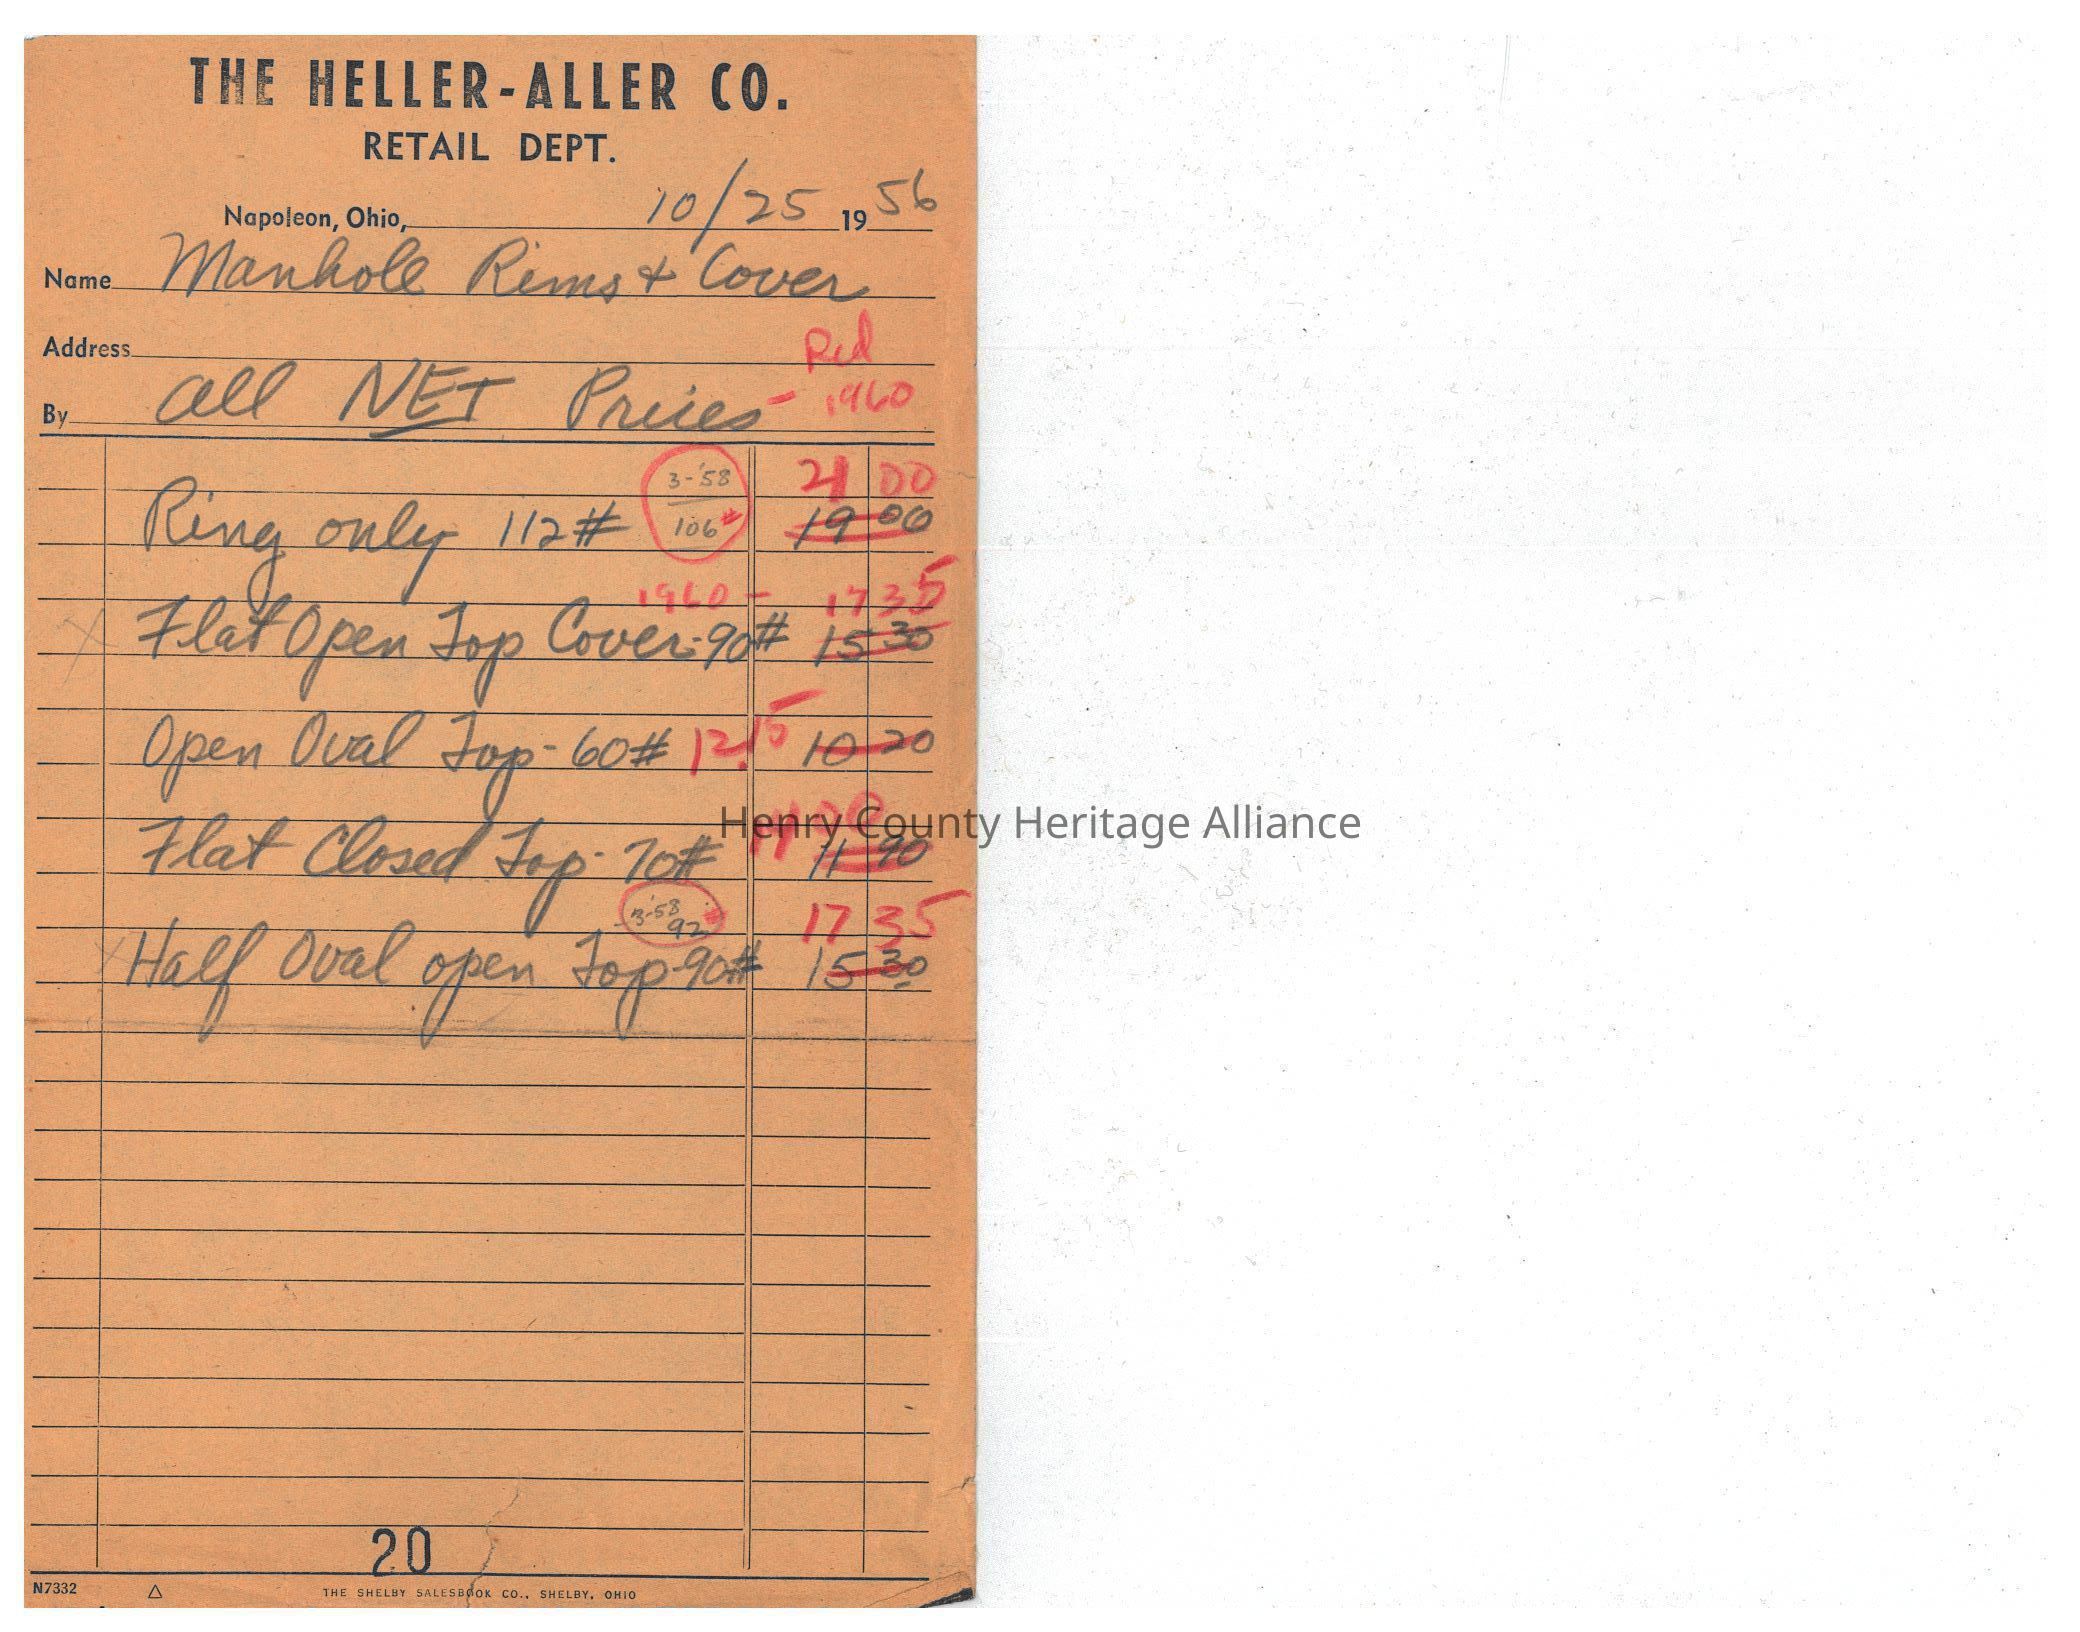 THE HELLER-ALLER CO.
RETAIL DEPT.
Napoleon, Ohio, 10/25 1956
Name Manhole Rims & Cover
Address Red
By All NET Prices - 1960
3-'58 21 00
Ring only 112# 106# 19 00
1960 - 17 35
Flat Open Top Cover-90# 15 30
Open Oval Top - 60# 12.15 10 20
14 00
Henry County Heritage Alliance
Flat Closed Top - 70# 11 90
3-'58 92# 17 35
Half Oval open Top-90# 15 30
20
N7332 THE SHELBY SALESBOOK CO., SHELBY, OHIO